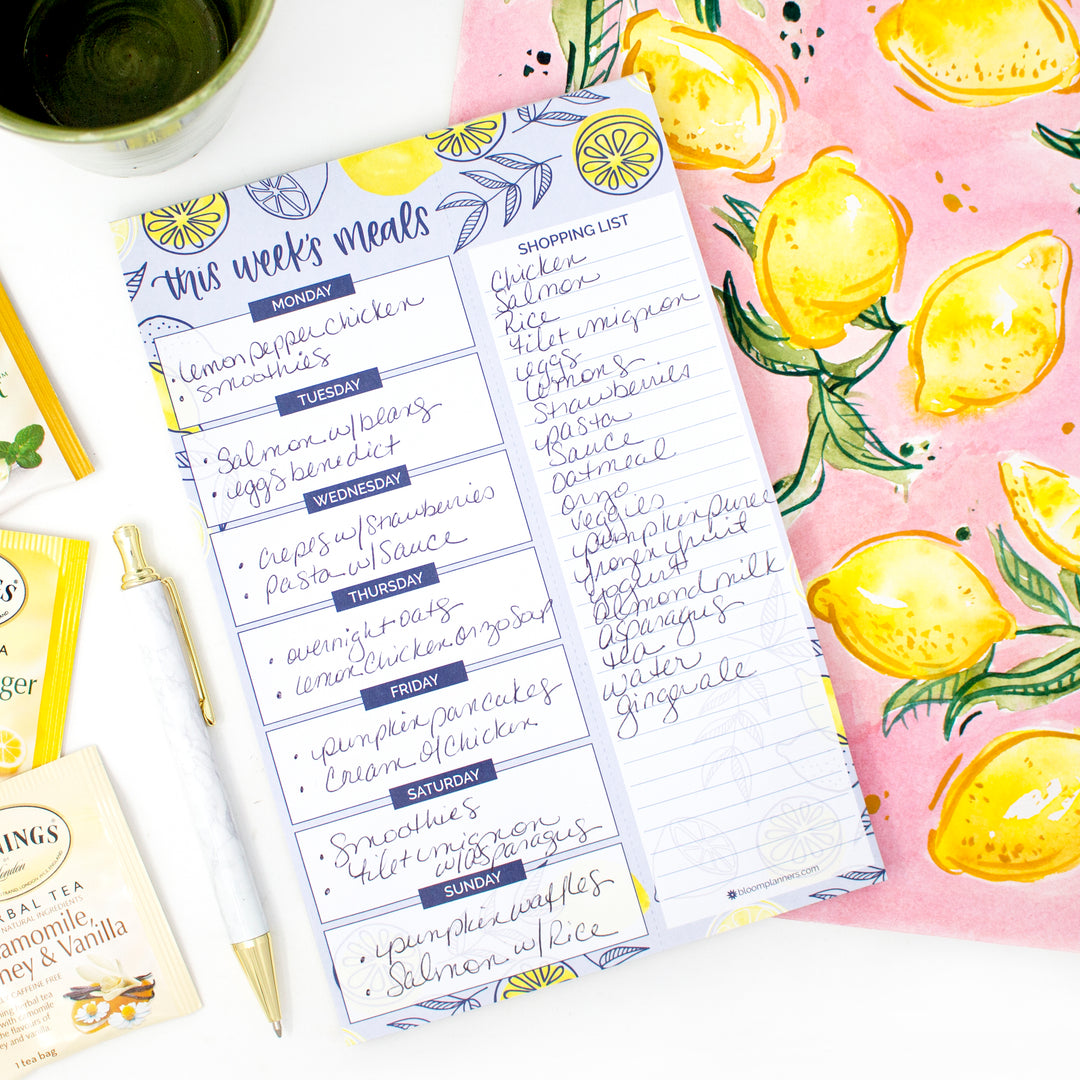 this week's meals
MONDAY
• Lemon pepper chicken
• Smoothies
TUESDAY
• Salmon w/ beans
• eggs benedict
WEDNESDAY
• Crepes w/ Strawberries
• pasta w/ Sauce
THURSDAY
• overnight oats
• Lemon Chicken Orzo Soup
FRIDAY
• pumpkin pancakes
• Cream of Chicken
SATURDAY
• Smoothies
• filet mignon
w/ asparagus
SUNDAY
• pumpkin waffles
• Salmon w/ Rice
SHOPPING LIST
Chicken
Salmon
Rice
filet mignon
eggs
Lemons
Strawberries
pasta
Sauce
oatmeal
Orzo
veggies
pumpkin puree
frozen fruit
yogurt
almond milk
asparagus
tea
water
gingerale
bloomplanners.com
NINGS
London
RBAL TEA
NATURAL INGREDIENTS
amomile,
ney & Vanilla
CAFFEINE FREE
ing herbal tea
with camomile
the flavours of
ey and vanilla.
1 tea bag
A
ger